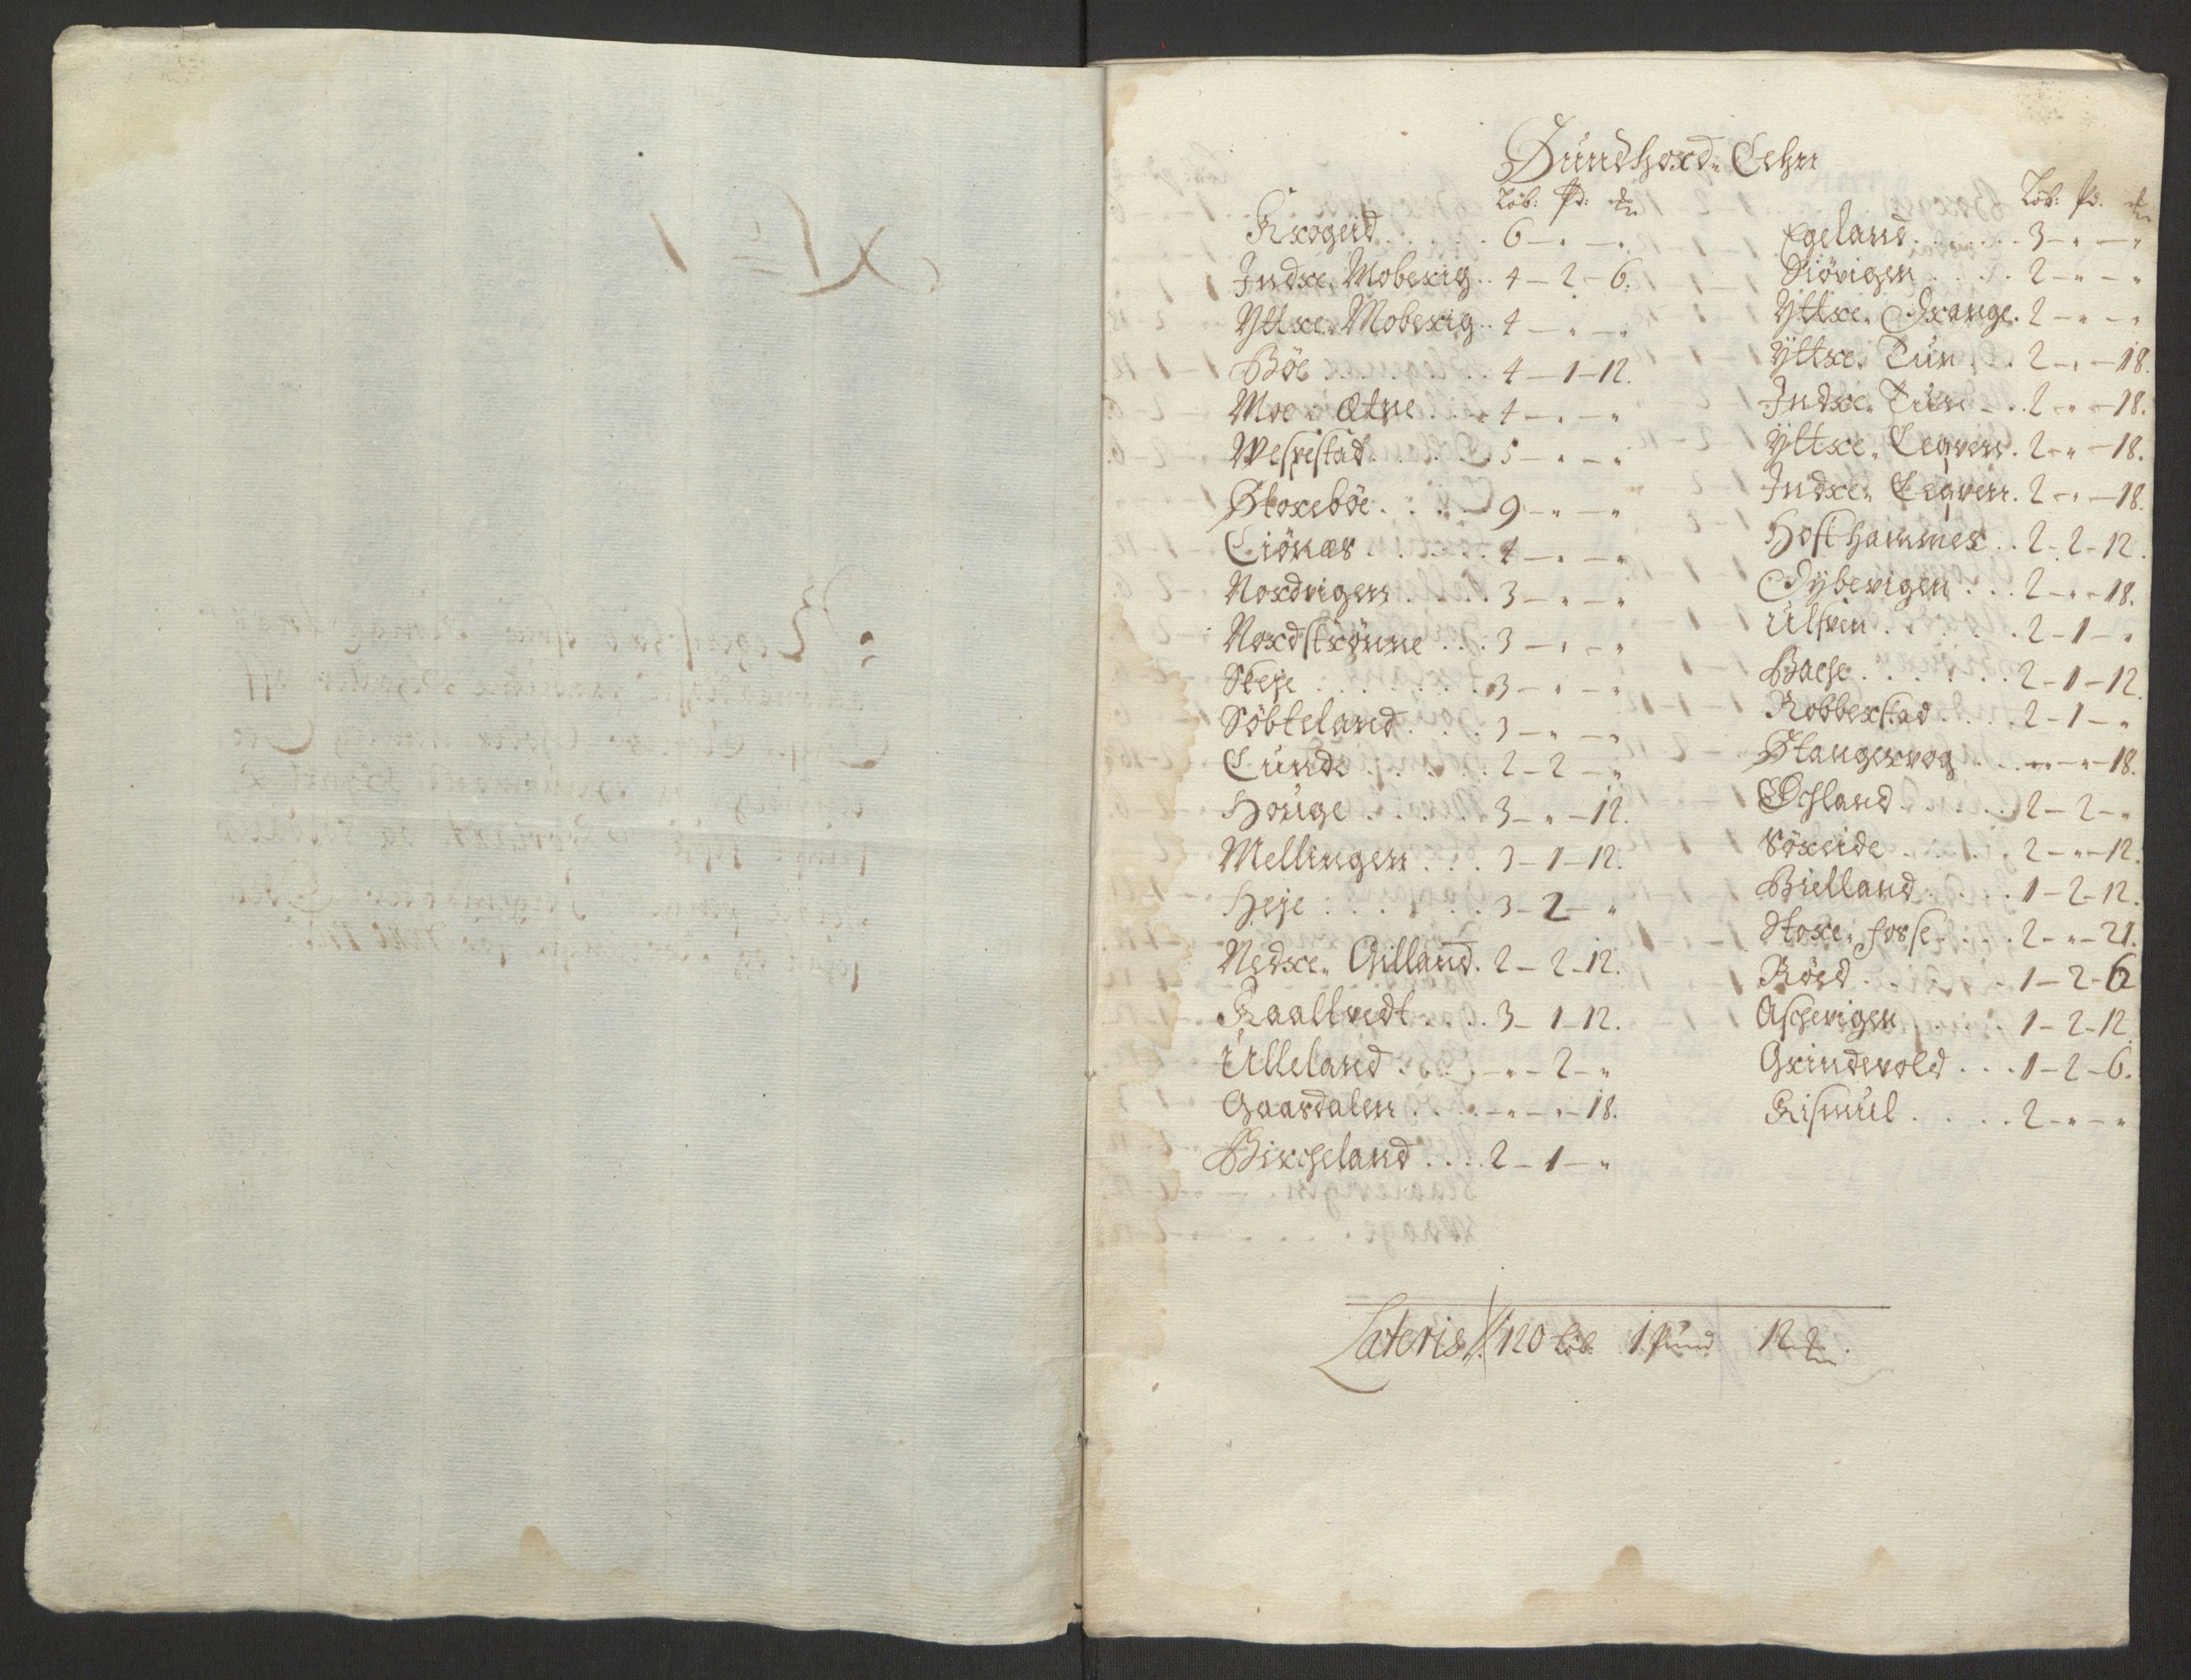 Sundhord: Lehn
Løb: Pd: ℔
Krogeid . . . . . 6 — „ — „
Indre Moberig . . 4 — 2 — 6.
Yttre Moberig . . 4 — „ — „
Böe . . . . . . . . 4 — 1 — 12.
Moe i Ætne . . . . 4 — „ — „
Wesvestad . . . . . 5 — „ — „
Storeböe . . . . . 9 — „ — „
Liönæs . . . . . . 4 — „ — „
Nordvigen . . . . . 3 — „ — „
Nordströnne . . . . 3 — „ — „
Steje . . . . . . . 3 — „ — „
Söbteland . . . . 3 — „ — „
Lunde . . . . . . 2 — 2 — „
Houge . . . . . . 3 — „ — 12.
Mellingen . . . . 3 — 1 — 12.
Heje . . . . . . . 3 — 2 — „
Nedre Gilland . 2 — 2 — 12.
Kaaltvedt . . . . 3 — 1 — 12.
Ulleland . . . . „ — 2 — „
Gaardalen . . . „ — „ — 18.
Bircheland . . . . 2 — 1 — „
Løb: Pd. ℔
Egeland . . . . . . 3 — „ — „
Siövigen . . . . . 2 — „ — „
Yttre Drange . 2 — „ — „
Yttre Tun . . . 2 — „ — 18.
Indre Tun . . . 2 — „ — 18.
Yttre Legven . 2 — „ — 18.
Indre Legven . 2 — „ — 18.
Hosthammer . . 2 — 2 — 12.
Dybevigen . . . 2 — „ — 18.
Ulfven . . . . . . 2 — 1 — „
Bache . . . . . . . 2 — 1 — 12.
Robberstad . . . . 2 — 1 — „
Stangervog . . . „ — „ — 18.
Echland . . . . . 2 — 2 — „
Söreide . . . . . 2 — „ — 12.
Bielland . . . . . 1 — 2 — 12.
Store fosse . . . . 2 — „ — 21.
Röed . . . . . . . 1 — 2 — 6
Aschevigen . . . . 1 — 2 — 12
Grindevold . . . 1 — 2 — 6.
Rismul . . . . . 2 — „ — „
Lateris // 120 Løb: 1 Pund 12 ℔.